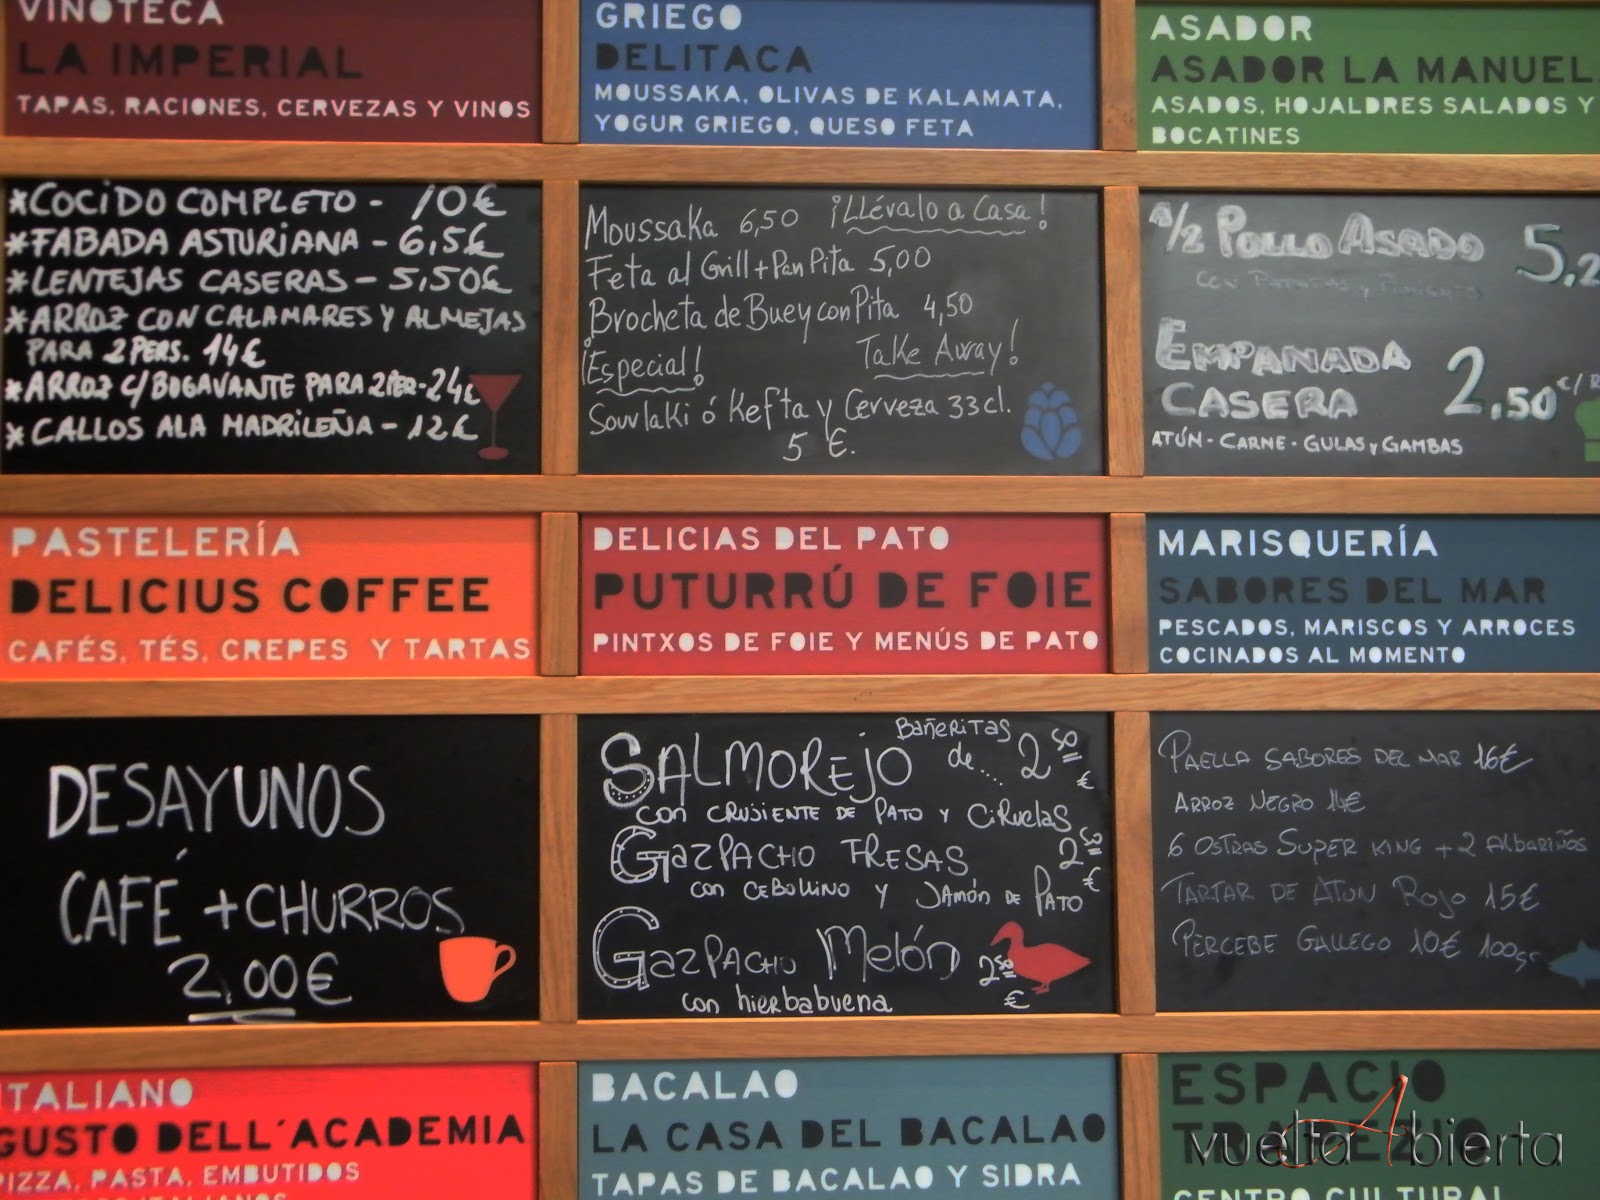 VINOTECA
LA IMPERIAL
TAPAS, RACIONES, CERVEZAS Y VINOS
*COCIDO COMPLETO - 10€
*FABADA ASTURIANA - 6,5€
*LENTEJAS CASERAS - 5,50€
*ARROZ CON CALAMARES Y ALMEJAS
PARA 2 PERS. 14€
*ARROZ C/BOGAVANTE PARA 2 PER - 24€
*CALLOS A LA MADRILEÑA - 12€
GRIEGO
DELITACA
MOUSSAKA, OLIVAS DE KALAMATA,
YOGUR GRIEGO, QUESO FETA
Moussaka 6,50 ¡Llévalo a Casa!
Feta al Grill + Pan Pita 5,00
Brocheta de Buey con Pita 4,50
¡Especial! Take Away!
Souvlaki ó Kefta y Cerveza 33cl.
5 €.
ASADOR
ASADOR LA MANUEL
ASADOS, HOJALDRES SALADOS Y
BOCATINES
1/2 POLLO ASADO 5,2
CON PATATAS Y
EMPANADA
CASERA 2.50 C/
ATÚN - CARNE - GULAS y GAMBAS
PASTELERÍA
DELICIUS COFFEE
CAFÉS, TÉS, CREPES Y TARTAS
DESAYUNOS
CAFÉ + CHURROS
2,00€
DELICIAS DEL PATO
PUTURRÚ DE FOIE
PINTXOS DE FOIE Y MENÚS DE PATO
BAÑERITAS
SALMOREJO de.... 2 50 €
con CRUJIENTE DE PATO Y CIRUELAS
GAZPACHO FRESAS 2 50 €
con CEBOLLINO Y JAMÓN DE PATO
GAZPACHO MELÓN 2 50 €
con hierbabuena
MARISQUERÍA
SABORES DEL MAR
PESCADOS, MARISCOS Y ARROCES
COCINADOS AL MOMENTO
PAELLA SABORES DEL MAR 16€
ARROZ NEGRO 14€
6 OSTRAS SUPER KING + 2 ALBARIÑOS
TARTAR DE ATUN ROJO 15€
PERCEBE GALLEGO 10€ 100gr
ITALIANO
GUSTO DELL´ACADEMIA
PIZZA, PASTA, EMBUTIDOS
ITALIANOS
BACALAO
LA CASA DEL BACALAO
TAPAS DE BACALAO Y SIDRA
ESPACIO
TRAPEZIO
CENTRO CULTURAL
vuelta Abierta